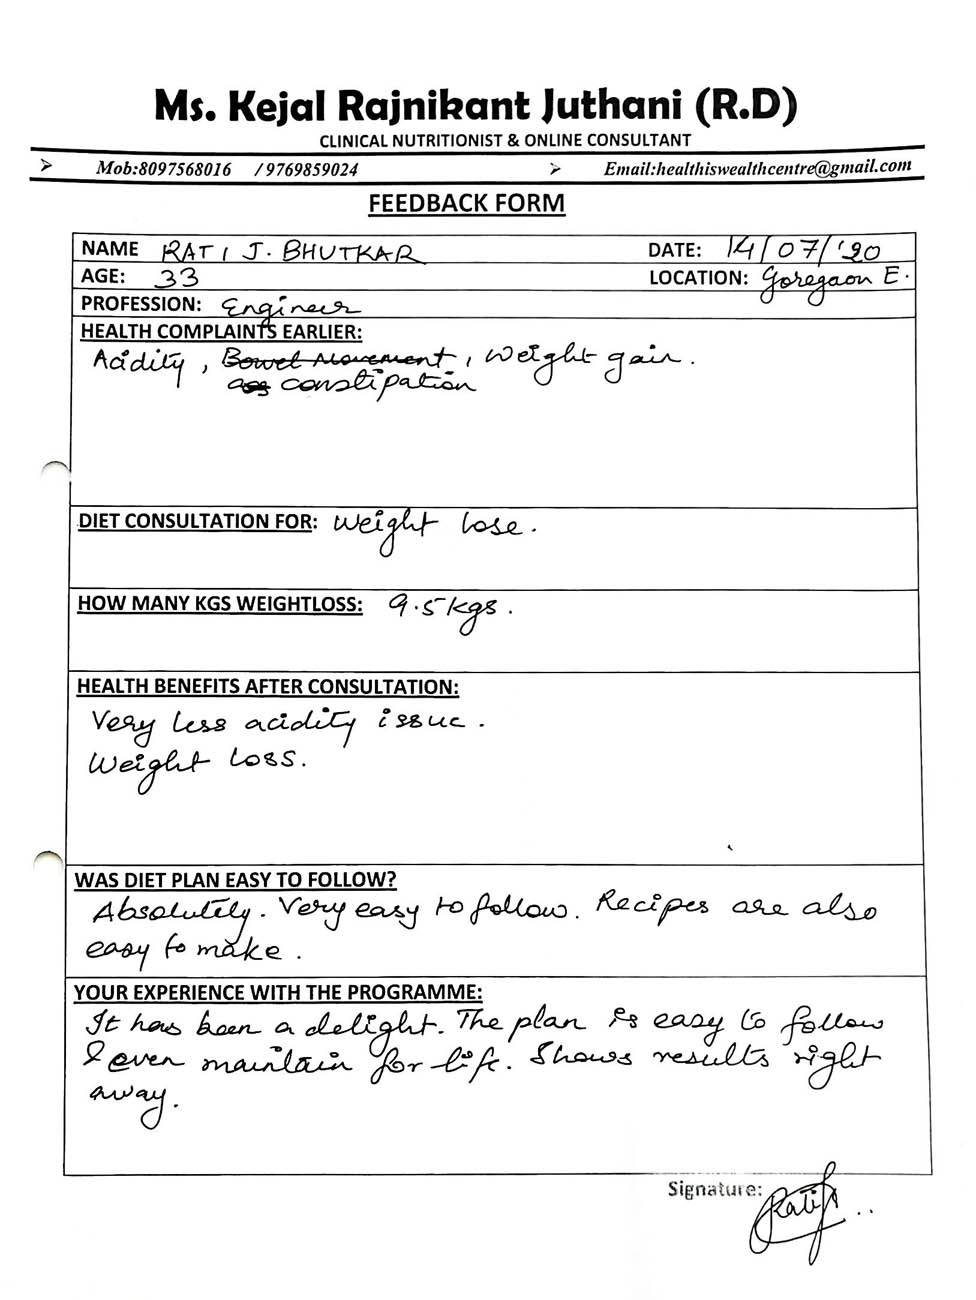 Ms. Kejal Rajnikant Juthani (R.D)
CLINICAL NUTRITIONIST & ONLINE CONSULTANT
➢ Mob:8097568016 / 9769859024 ➢ Email:healthiswealthcentre@gmail.com
FEEDBACK FORM
NAME RATI J. BHUTKAR DATE: 14/07/'20
AGE: 33 LOCATION: Goregaon E.
PROFESSION: Engineer
HEALTH COMPLAINTS EARLIER:
Acidity, Bowel Movement, weight gain.
constipation
DIET CONSULTATION FOR: Weight lose.
HOW MANY KGS WEIGHTLOSS: 9.5kgs.
HEALTH BENEFITS AFTER CONSULTATION:
Very less acidity issue.
Weight loss.
WAS DIET PLAN EASY TO FOLLOW?
Absolutely. Very easy to follow. Recipes are also
easy to make.
YOUR EXPERIENCE WITH THE PROGRAMME:
It has been a delight. The plan is easy to follow
& even maintain for life. Shows results right
away.
Signature: Rati